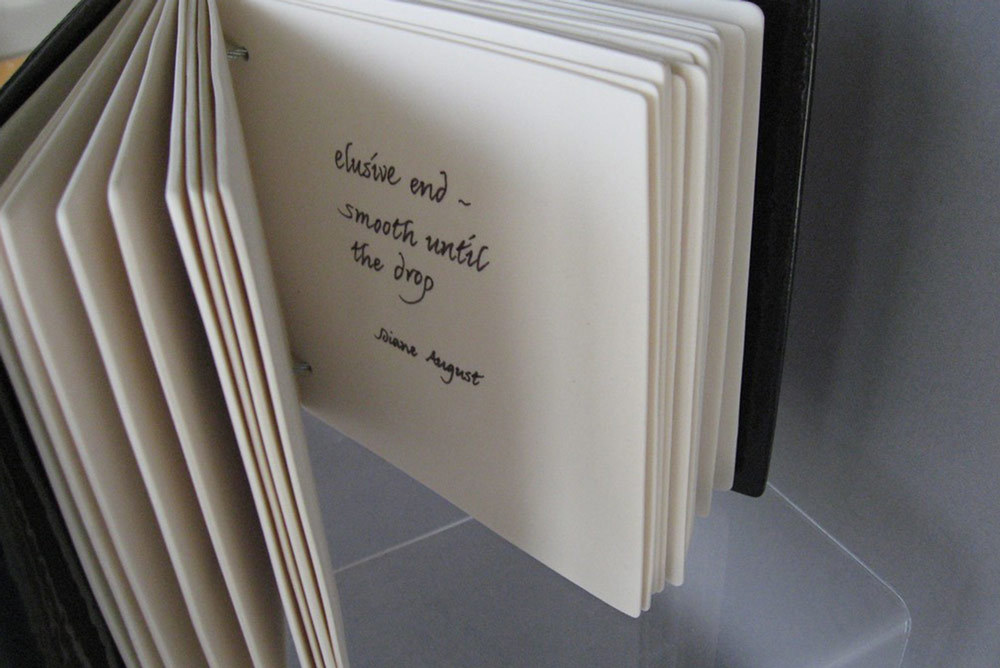 elusive end ~
smooth until
the drop
Diane August